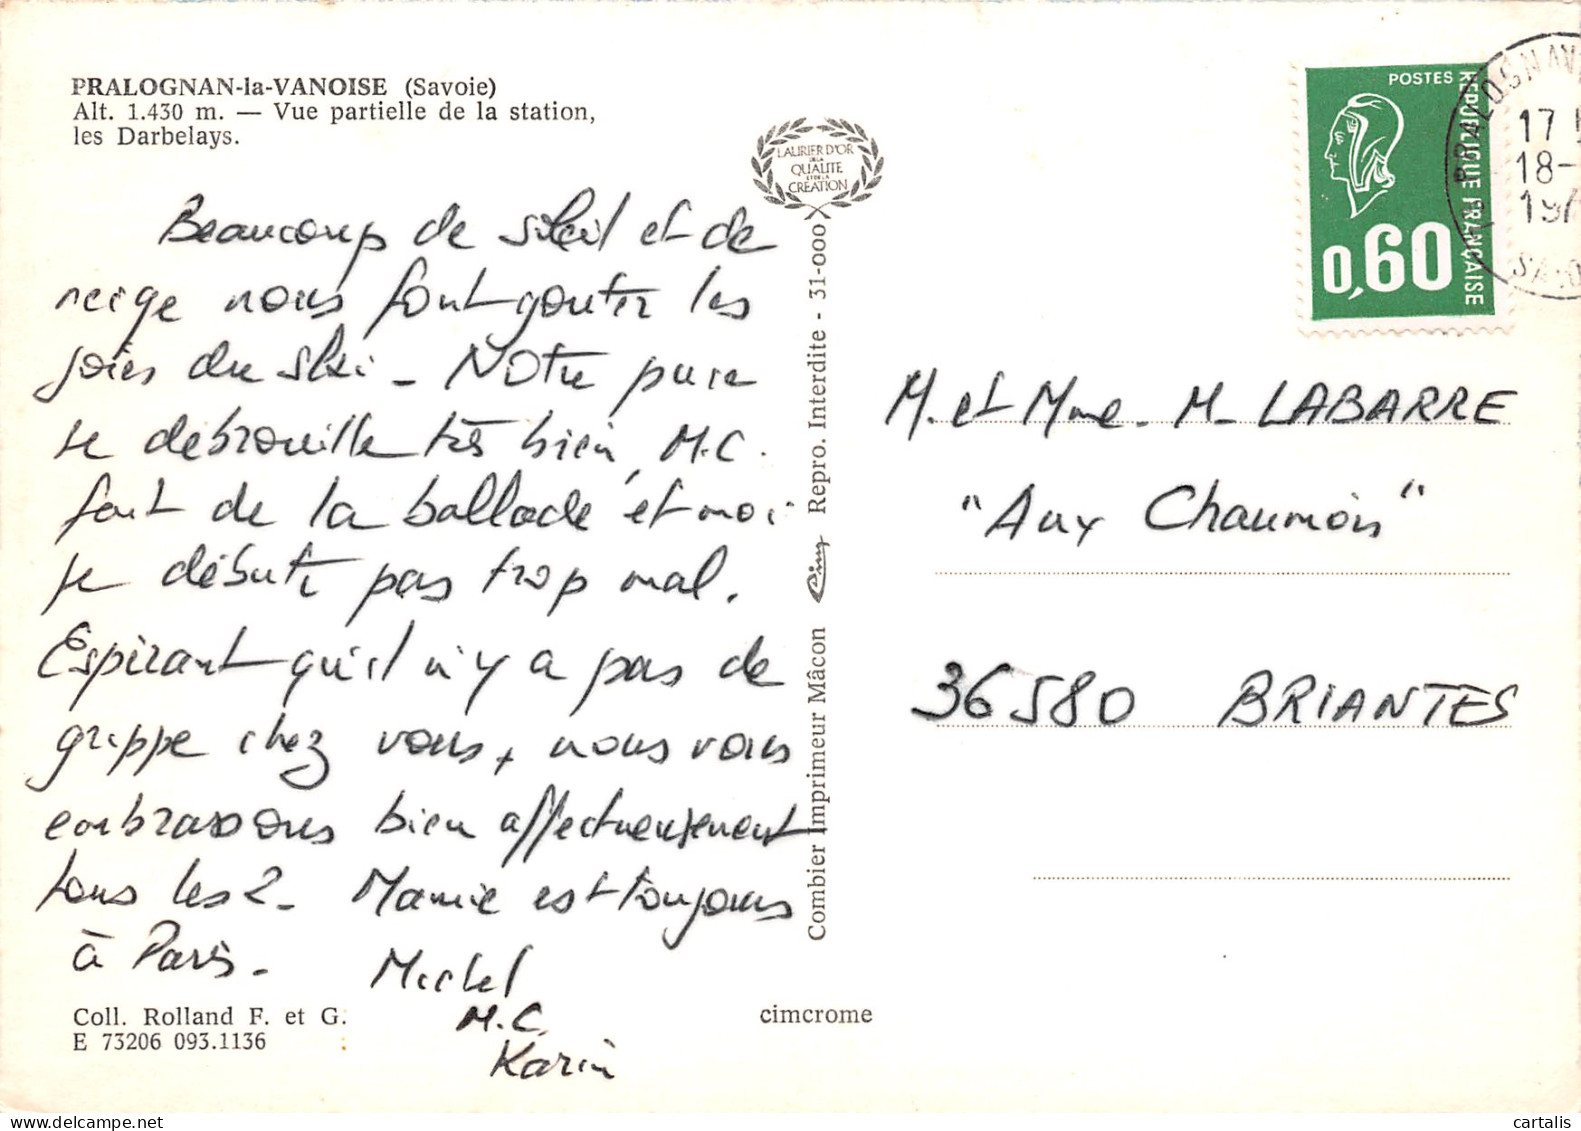 PRALOGNAN-la-VANOISE (Savoie)
Alt. 1.430 m. — Vue partielle de la station,
les Darbelays.
Beaucoup de soleil et de
neige nous font gouter les
joies du ski - Notre puce
se débrouille très bien, M.C.
fait de la ballade et moi
je débute pas trop mal.
Espérant qu'il n'y a pas de
grippe chez vous, nous vous
embrassons bien affectueusement
tous les 2 - Mamie est toujours
à Paris -
Michel
M.C.
Karin
Coll. Rolland F. et G.
E 73206 093.1136
LAURIER D'OR
DE LA
QUALITE
ET DE LA
CREATION
Combier Imprimeur Mâcon Cim Repro. Interdite - 31-000
cimcrome
POSTES
REPUBLIQUE FRANÇAISE
0,60
PRALOGNAN
17 H
18-
197
SAVO
M. et Mme. M. LABARRE
"Aux Chaumois"
36580 BRIANTES
cartalis